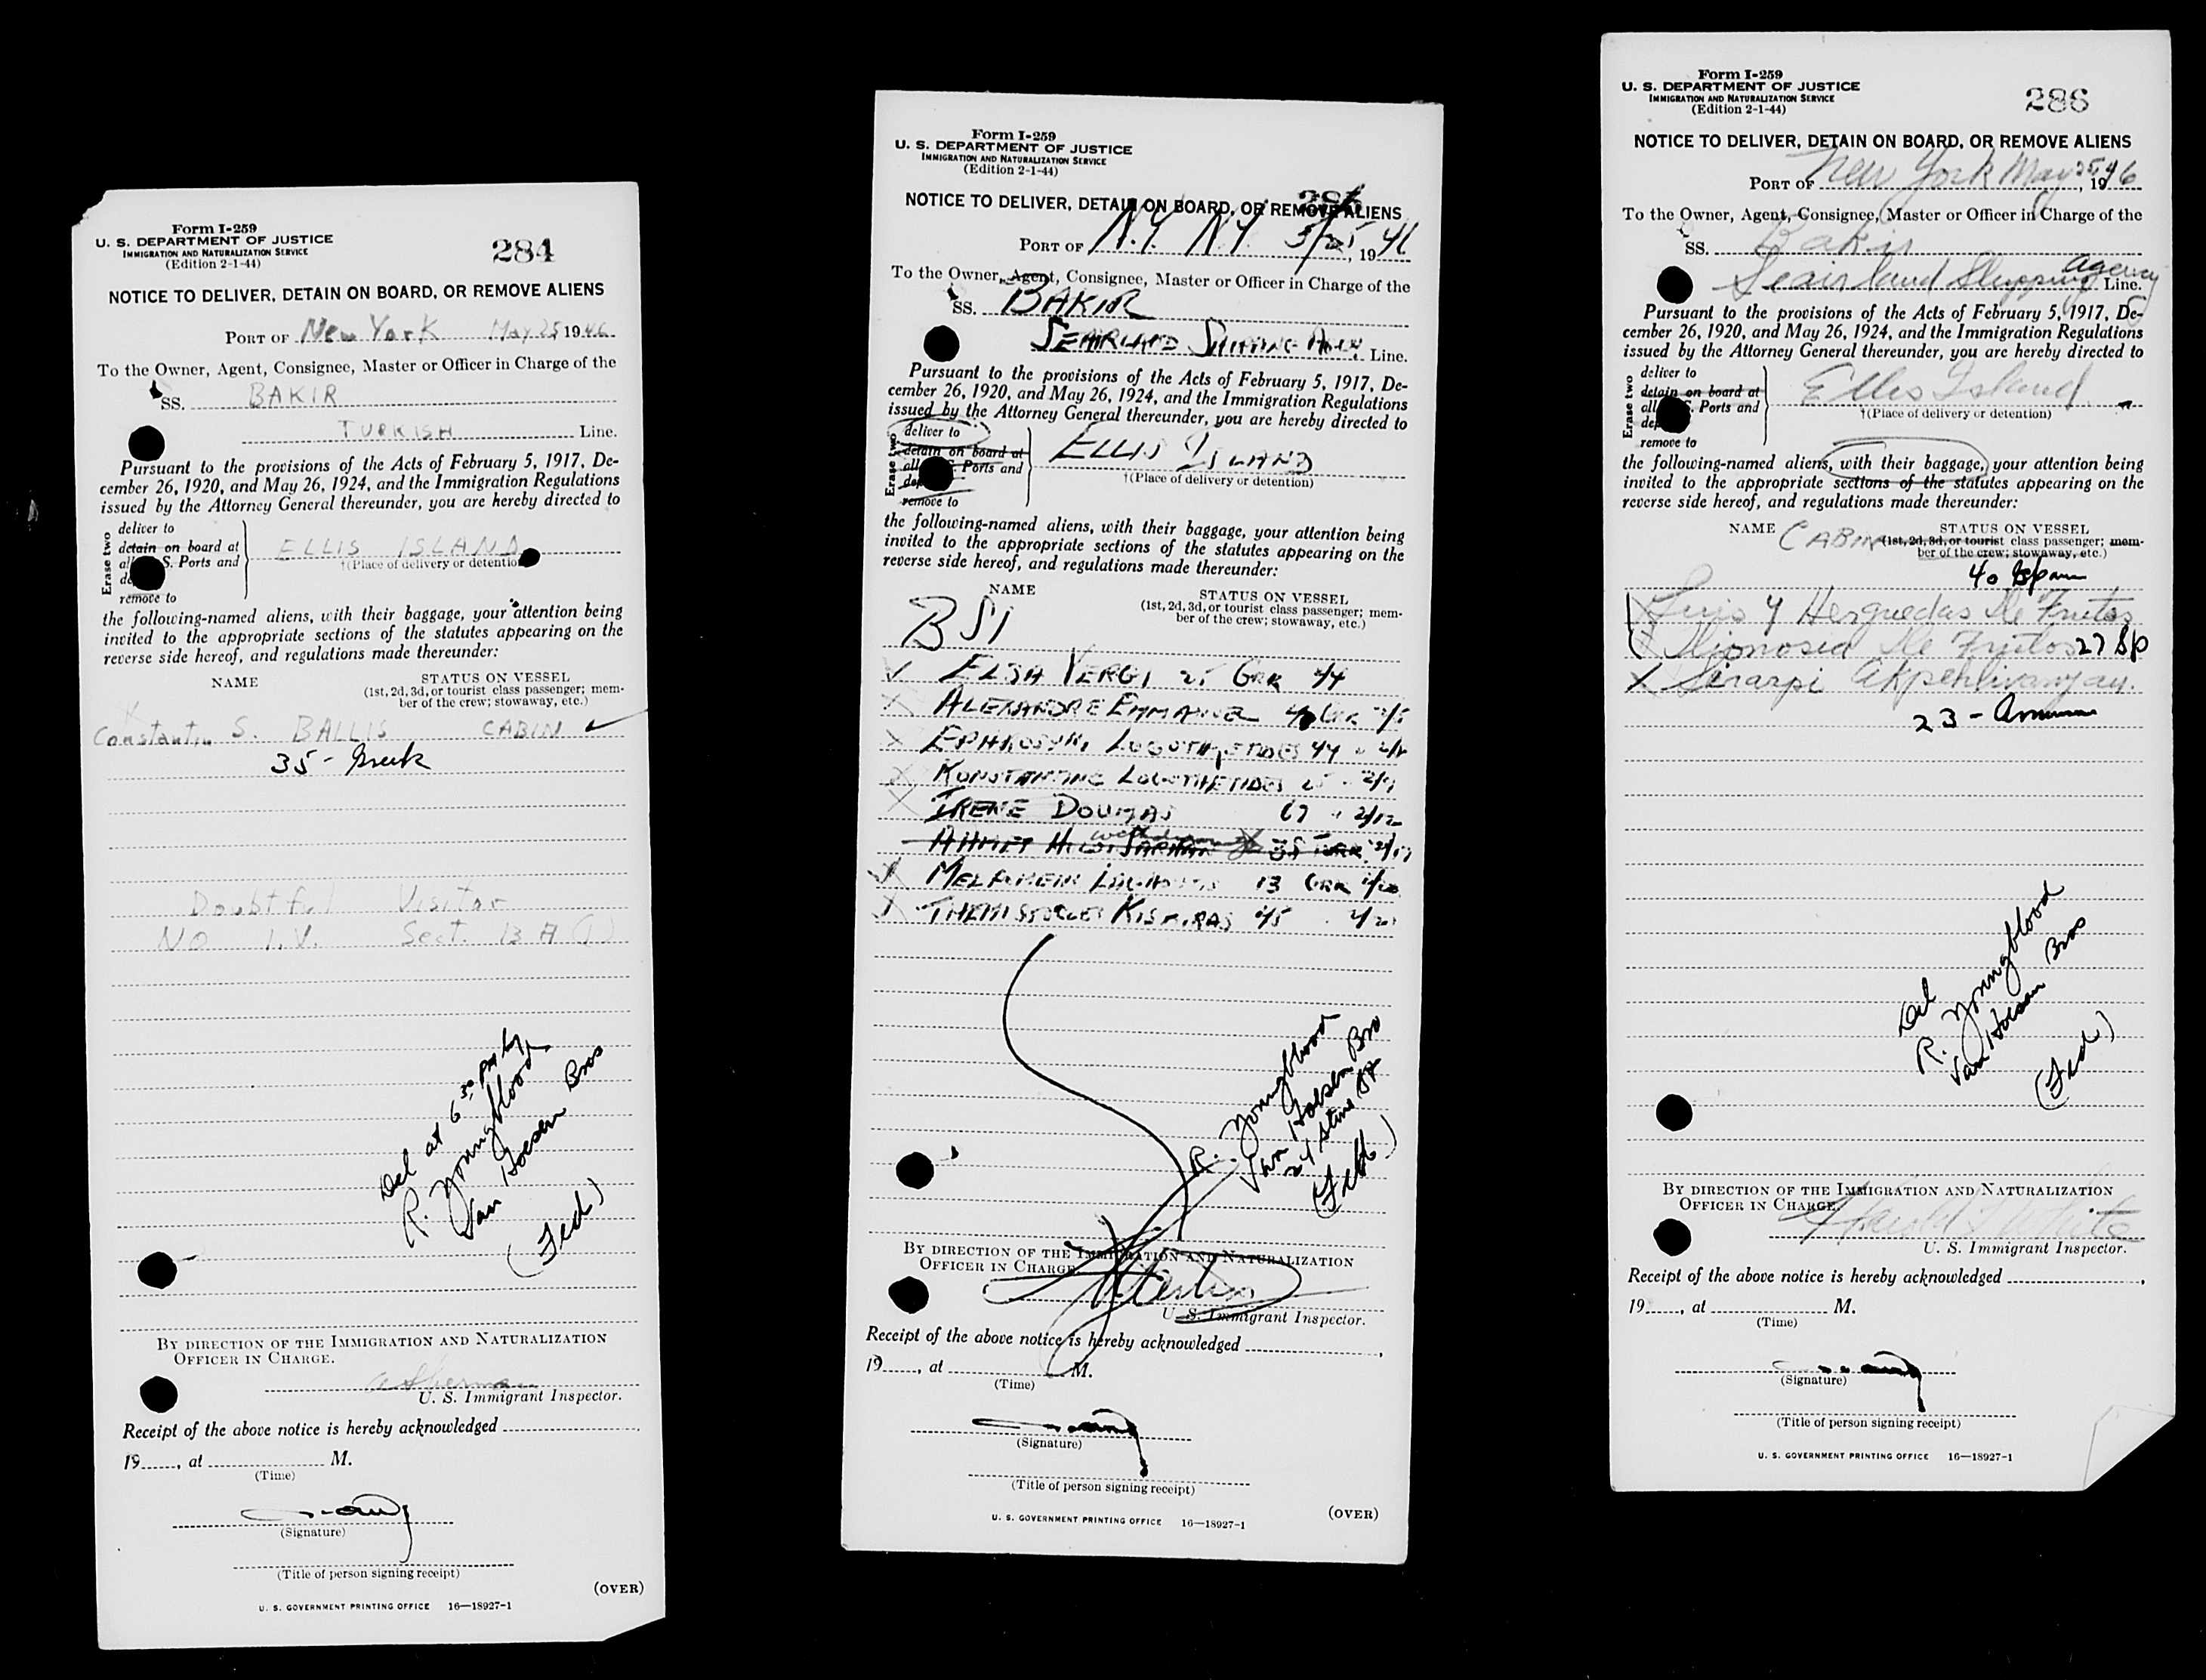 Form I-259
U. S. DEPARTMENT OF JUSTICE
IMMIGRATION AND NATURALIZATION SERVICE
(Edition 2-1-44)
284
NOTICE TO DELIVER, DETAIN ON BOARD, OR REMOVE ALIENS
PORT OF New York May 25, 1946
To the Owner, Agent, Consignee, Master or Officer in Charge of the
SS. BAKIR
TURKISH Line.
Pursuant to the provisions of the Acts of February 5, 1917, De-
cember 26, 1920, and May 26, 1924, and the Immigration Regulations
issued by the Attorney General thereunder, you are hereby directed to
Erase two
deliver to
detain on board at
S. Ports and
remove to
ELLIS ISLAND
†(Place of delivery or detention
the following-named aliens, with their baggage, your attention being
invited to the appropriate sections of the statutes appearing on the
reverse side hereof, and regulations made thereunder:
NAME STATUS ON VESSEL
(1st, 2d, 3d, or tourist class passenger; mem-
ber of the crew; stowaway, etc.)
Constantin S. BALLIS CABIN ✓
35 - Greek
Doubtful Visitor
NO I.V. Sect. 13 A (1)
Del at 6 30 PM by
R. Youngblood
Van Hoesen Bros
(Fed)
BY DIRECTION OF THE IMMIGRATION AND NATURALIZATION
OFFICER IN CHARGE.
A Sherman
U. S. Immigrant Inspector.
Receipt of the above notice is hereby acknowledged
19 , at M.
(Time)
(Signature)
(Title of person signing receipt)
(OVER)
U. S. GOVERNMENT PRINTING OFFICE 16—18927-1
Form I-259
U. S. DEPARTMENT OF JUSTICE
IMMIGRATION AND NATURALIZATION SERVICE
(Edition 2-1-44)
285
NOTICE TO DELIVER, DETAIN ON BOARD, OR REMOVE ALIENS
PORT OF N.Y. N.Y. 5/25, 1946
To the Owner, Agent, Consignee, Master or Officer in Charge of the
SS. BAKIR
SEAIRLAND SHIPPING Line.
Pursuant to the provisions of the Acts of February 5, 1917, De-
cember 26, 1920, and May 26, 1924, and the Immigration Regulations
issued by the Attorney General thereunder, you are hereby directed to
Erase two
deliver to
detain on board at
all S. Ports and
remove to
ELLIS ISLAND
†(Place of delivery or detention)
the following-named aliens, with their baggage, your attention being
invited to the appropriate sections of the statutes appearing on the
reverse side hereof, and regulations made thereunder:
NAME STATUS ON VESSEL
(1st, 2d, 3d, or tourist class passenger; mem-
ber of the crew; stowaway, etc.)
BSI
ELSA VERGI 25 GRK 4/4
ALEXANDRE EMMANUEL GRK 2/5
LOGOTHETIDES 44 "
KONSTANTINE LOGOTHETIDES 2/9
IRENE DOUMAS 67 " 2/12
AHMET 35 TURK 2/17
13 GRK
THEMISTOCLES KISMIRAS 45
R. Youngblood
Van Hoesen Bro
24 Stone St
(Fed)
BY DIRECTION OF THE IMMIGRATION AND NATURALIZATION
OFFICER IN CHARGE.
U. S. Immigrant Inspector.
Receipt of the above notice is hereby acknowledged
19 , at M.
(Time)
(Signature)
(Title of person signing receipt)
(OVER)
U. S. GOVERNMENT PRINTING OFFICE 16—18927-1
Form I-259
U. S. DEPARTMENT OF JUSTICE
IMMIGRATION AND NATURALIZATION SERVICE
(Edition 2-1-44)
286
NOTICE TO DELIVER, DETAIN ON BOARD, OR REMOVE ALIENS
PORT OF New York May 25, 1946
To the Owner, Agent, Consignee, Master or Officer in Charge of the
SS. Bakir
Seairland Shipping Agency Line.
Pursuant to the provisions of the Acts of February 5, 1917, De-
cember 26, 1920, and May 26, 1924, and the Immigration Regulations
issued by the Attorney General thereunder, you are hereby directed to
Erase two
deliver to
detain on board at
all S. Ports and
remove to
Ellis Island
†(Place of delivery or detention)
the following-named aliens, with their baggage, your attention being
invited to the appropriate sections of the statutes appearing on the
reverse side hereof, and regulations made thereunder:
NAME STATUS ON VESSEL
CABIN (1st, 2d, 3d, or tourist class passenger; mem-
ber of the crew; stowaway, etc.)
40 Span
X Luis y Herguedas De Frutos
X Dionosia De Frutos 27 Sp
X Sirarpi Akpehlivanyan.
23 - Armenian
Del
R. Youngblood
Van Hoesen Bros
(Fed)
BY DIRECTION OF THE IMMIGRATION AND NATURALIZATION
OFFICER IN CHARGE.
Harold J White
U. S. Immigrant Inspector.
Receipt of the above notice is hereby acknowledged
19 , at M.
(Time)
(Signature)
(Title of person signing receipt)
U. S. GOVERNMENT PRINTING OFFICE 16—18927-1